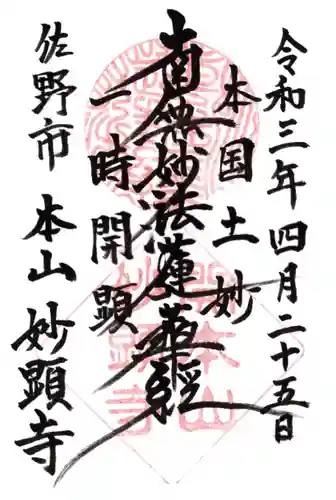 令和三年四月二十五日
本国土妙
南無妙法蓮華経
一時開顕
佐野市 本山 妙顕寺